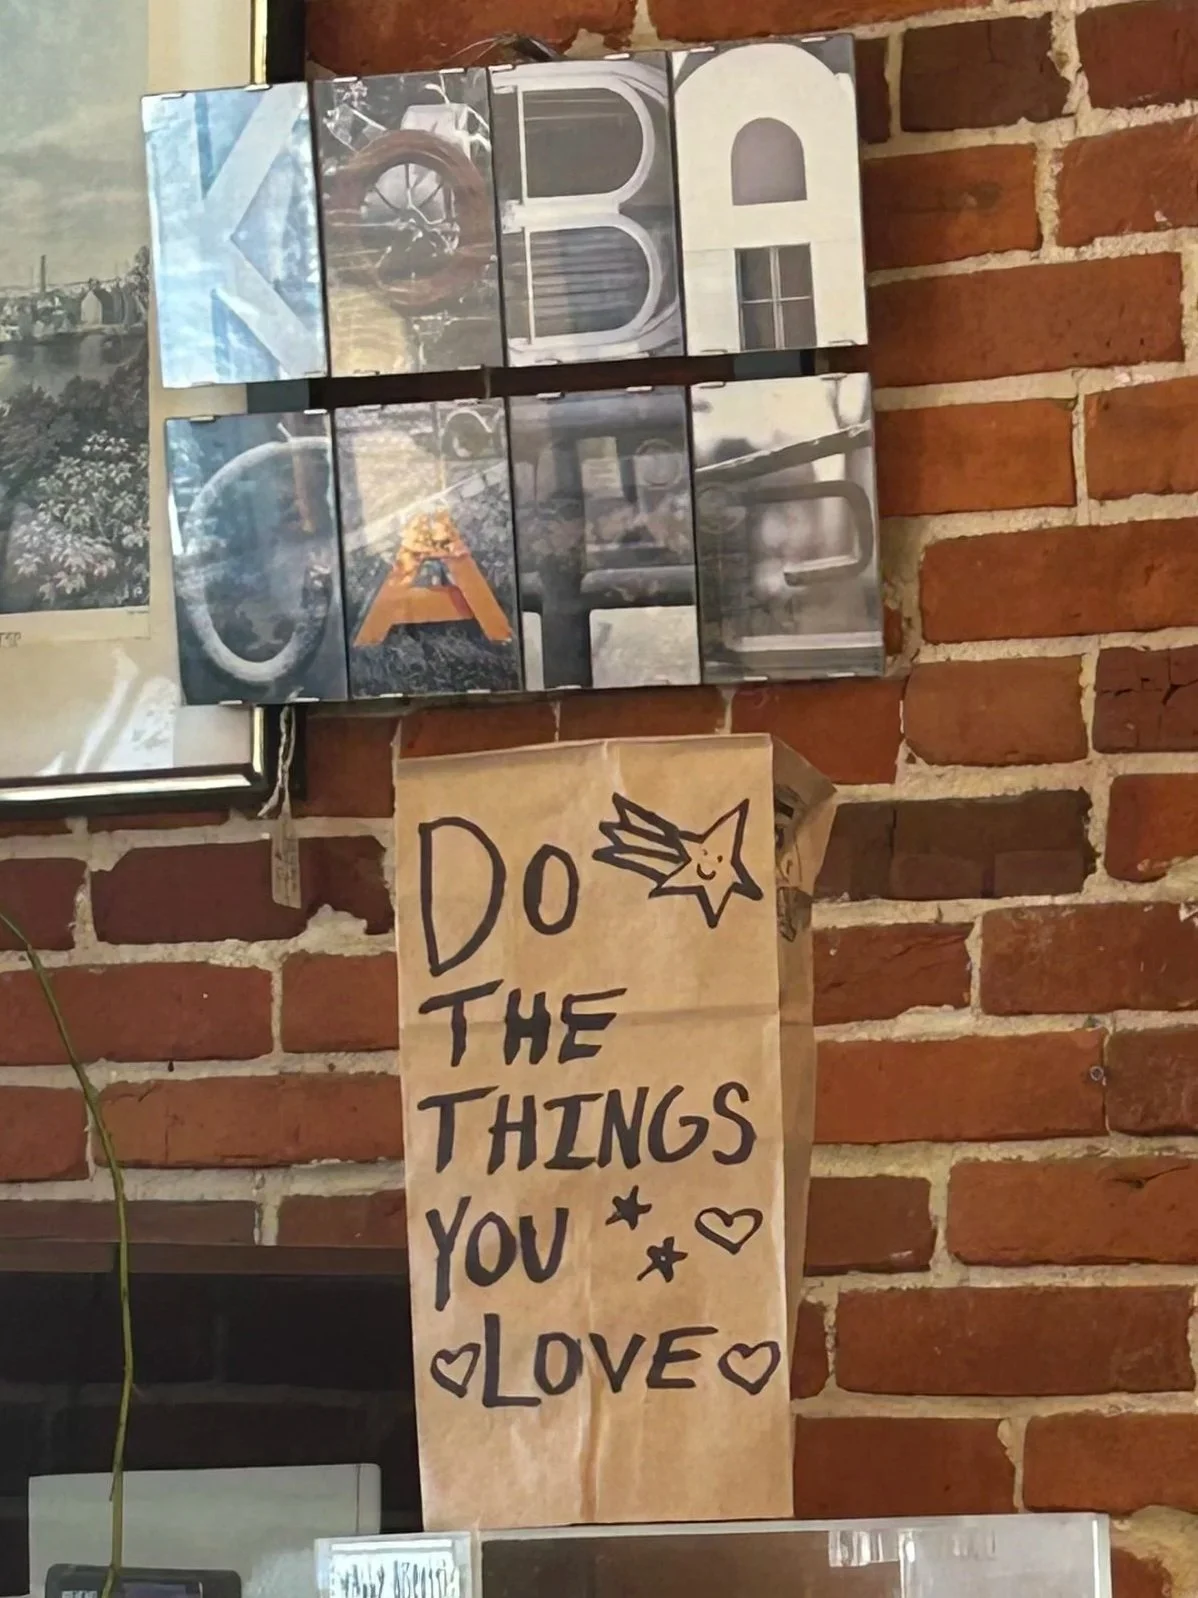 KOBA
CAFE
DO
THE
THINGS
YOU
LOVE